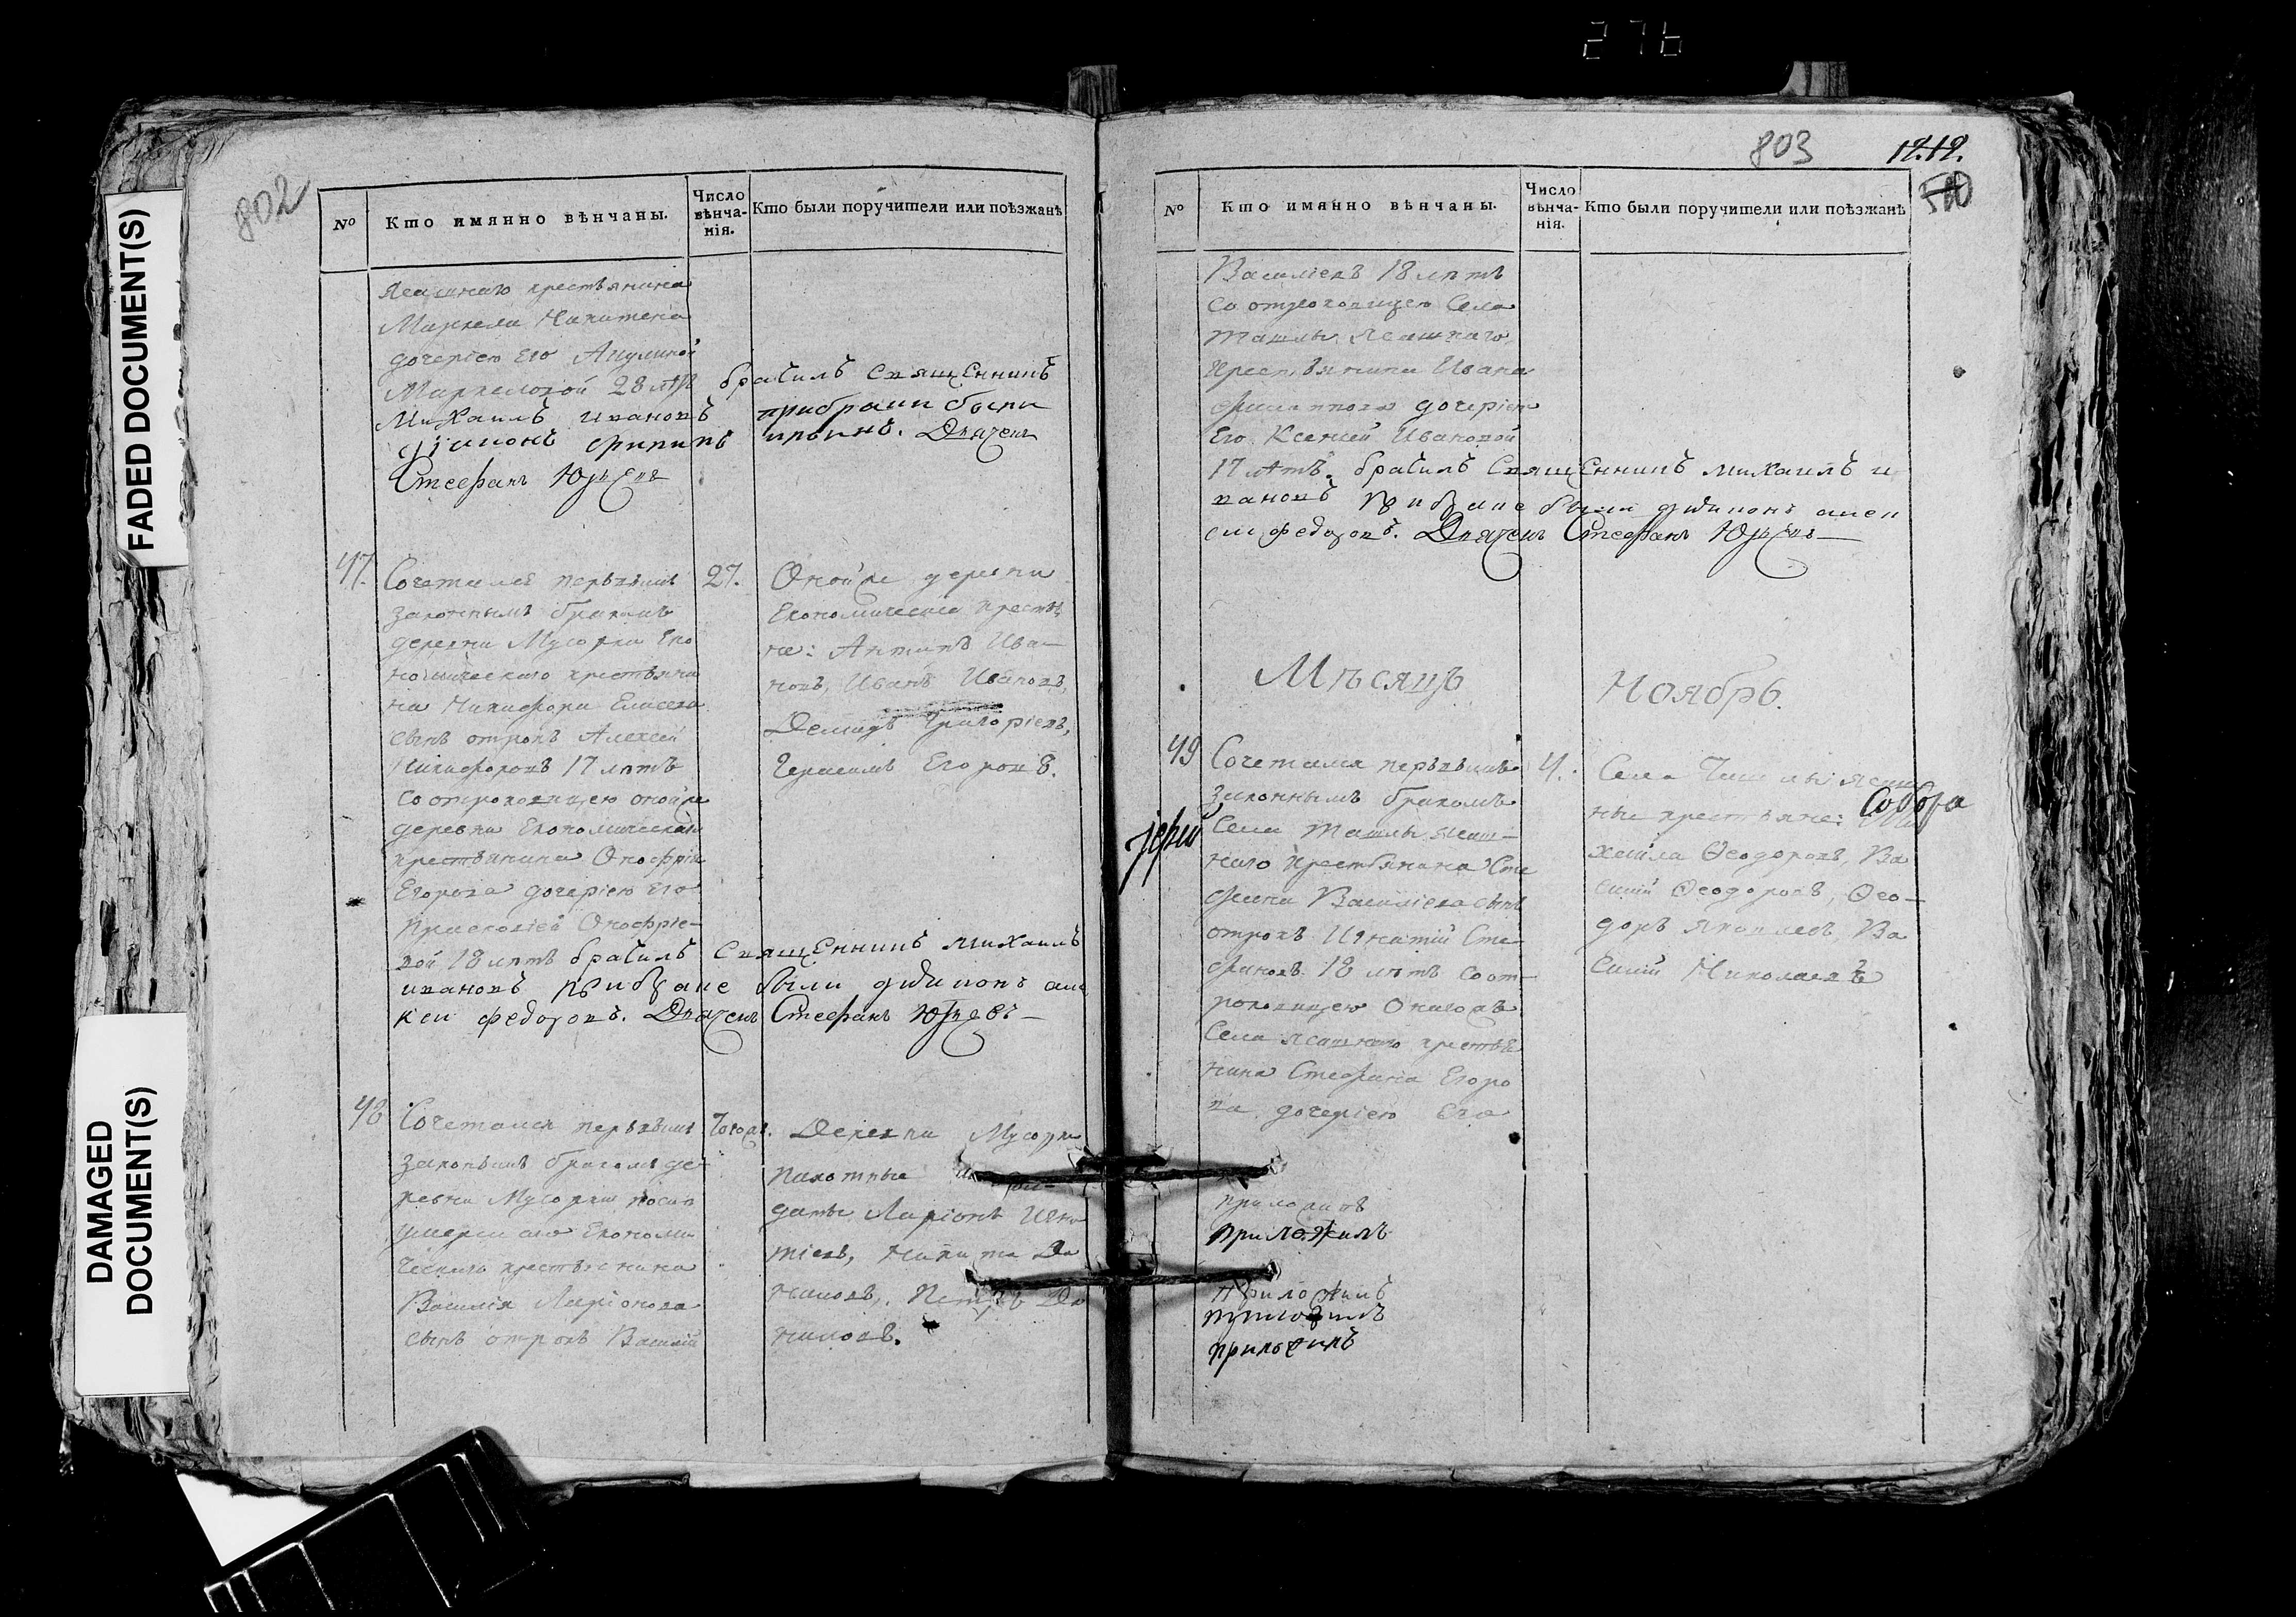 276
FADED DOCUMENT(S)
DAMAGED
DOCUMENT(S)
802
№
Кто имянно вѣнчаны.
Число
вѣнча-
нія.
Кто были поручители или поѣзжанѣ
Ясашнаго крестьянина
Маркела Никитена
дочерію Его Акулиной
Маркеловой 28 лѣтъ брачилъ священникъ
Михаилъ ивановъ прибраки были
филипъ ильинъ. Дьячекъ
Стефанъ Юрьевъ
47.
Сочетался первымъ
законнымъ бракомъ
деревни Мусорки Еко
номическаго крестьяни
на Никифора Елисева
сынъ отрокъ Алексей
Никифоровъ 17 лѣтъ
со отроковицею оной же
деревни Економическаго
крестьянина Онофрія
Егорова дочерію Его
Онофріе-
вой 18 лѣтъ брачилъ священникъ михаилъ
ивановъ были дьяконъ але
ксѣи федоровъ. Дьячекъ Стефанъ Юрьевъ
27.
Оной же деревни
Економическіе крестья
не: Антипъ Ива-
новъ, Иванъ Ивановъ,
Демидъ Григоріевъ,
Герасимъ Егоровъ.
48
Сочетался первымъ
законымъ бракомъ де-
ревни Мусорки после
умершаго Економи
ческаго крестьянина
Василія Ларіонова
сынъ отрокъ Василій
Тогожъ.
Деревни Мусорки
пахотные
даты Ларіонъ Игна
тіевъ, Никита Да
ниловъ, Петръ Да
ниловъ.
803
12.12.
500
№
Кто имянно вѣнчаны.
Число
вѣнча-
нія.
Кто были поручители или поѣзжанѣ
Василіевъ 18 лѣтъ
со отроковицею Села
Ташлы Ясашнаго
крестьянина Ивана
дочерію
Его Ксенией Ивановой
17 лѣтъ. брачилъ священникъ михаилъ и
вановъ были дьяконъ алек
сеи федоровъ. Дьячекъ Стефанъ Юрьевъ
Мѣсяцъ Ноябрь.
49
Сочетался первымъ
законнымъ бракомъ
Села Ташлы ясаш-
наго крестьянина Сте
фана Василіева сынъ
отрокъ Игнатій Сте-
фановъ 18 лѣтъ со от-
роковицею Оногожъ
Села ясашнаго крестья
нина Стефана Егоро
ва дочерію Его
4.
Села Ташлы ясаш
ные крестьяне: Ми
хаила Ѳеодоровъ, Ва
силій Ѳеодоровъ, Ѳео-
доръ Яковлевъ, Ва
силій Николаевъ
Собора
іерей
приложилъ
приложилъ
приложилъ
приложилъ
приложилъ